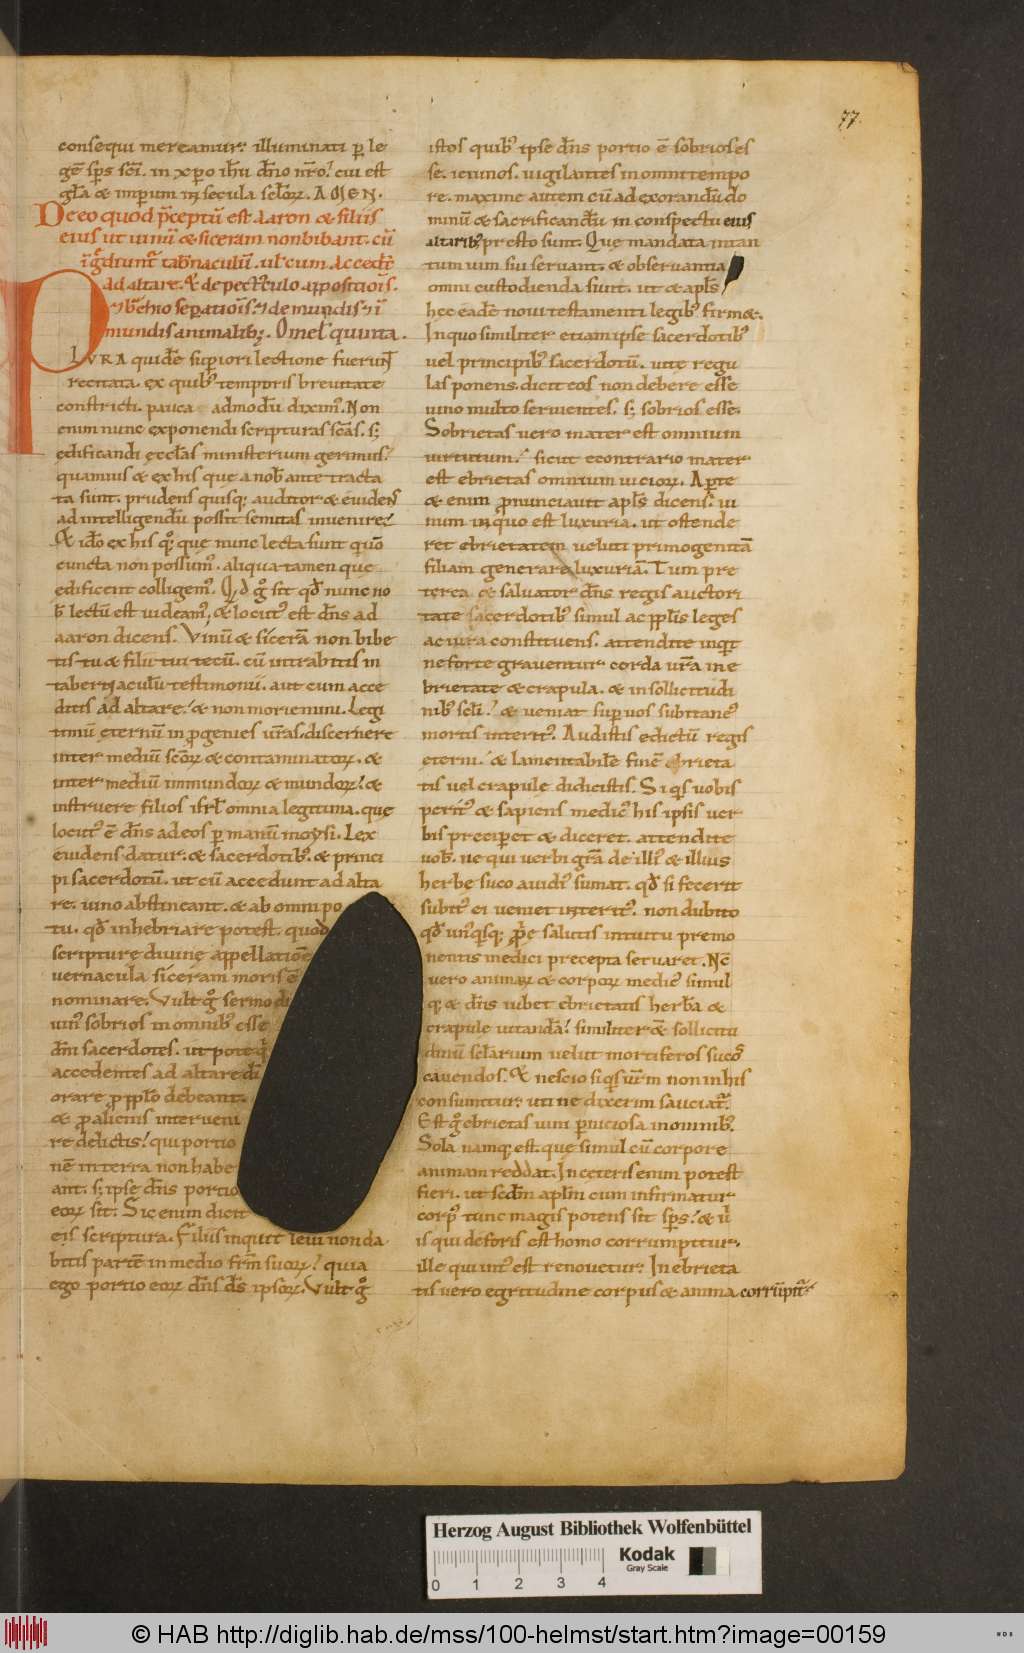 77.
consequi mereamur. illuminati p̄ le
gē sp̄s sc̄i. in xp̄o ih̄u dn̄o nr̄o. cui est
gl̄a & imꝑium in secula sc̄loꝝ. AMEN.
De eo quod p̄ceptū est Aaron & filiis
eius ut uinū & siceram non bibant. cū
ad altare. & de pectusculo appositiōis.
mundis animalibꝫ. Omel̄ quinta.
PLVRA quidē suꝑiori lectione fuerunt
recitata. ex quibꝰ temporis breuitate
constricti. pauca admodū diximꝰ. Non
enim nunc exponendi scripturas sc̄as. sꝫ
ędificandi ęccl̄as ministerium gerimus.
quamuis & ex his que a nob̄ ante tracta
ta sunt. prudens quisqꝫ auditor & euidens
ad intelligendū possit semitas inuenire.
Et id̄o ex his qꝫ que nunc lecta sunt qm̄
cuncta non possumꝰ. aliqua tamen que
edificent colligemꝰ. Qd̄ g̊ sit qd̄ nunc no
b̄ lectū est uideamꝰ. & locutꝰ est dn̄s ad
aaron dicens. Vinū & sicerā non bibe
tis tu & filii tui tecū. cū intrabitis in
tabernaculū testimonii. aut cum acce
ditis ad altare. & non moriemini. Legi
timū eternū in ꝓgenies ur̄as. discernere
inter mediū sc̄oꝝ & contaminatoꝝ. &
inter mediū immundoꝝ & mundoꝝ. &
instruere filios isrl̄ omnia legitima. que
locutꝰ ē dn̄s ad eos ꝑ manū moysi. Lex
euidens datur. & sacerdotibꝰ. & princi
pi sacerdotū. ut cū accedunt ad alta
re. uino abstineant. & ab omni po
tu. qd̄ inhebriare potest. quod
scripture diuinę appellatione
uernacula siceram moris ē
nominare. Vult g̊ sermo di
uinꝰ sobrios in omnibꝰ esse
dn̄i sacerdotes. ut pote qi
accedentes ad altare di
orare ꝓ pplo debeant.
& ꝓ alienis interueni
re delictis. qui portio
nē in terra non habe
ant. sꝫ ipse dn̄s portio
eoꝝ sit. Sic enim dicit
eis scriptura. Filiis inquit leui non da
bitis partē in medio fr̄m suoꝝ. quia
ego portio eoꝝ dn̄s d̄s ipsoꝝ. Vult g̊
istos quibꝰ ipse dn̄s portio ē sobrios es
se. ieiunos. uigilantes in omni tempo
re. maxime autem cū ad exorandū do
minū & sacrificandū in conspectu eius
altaribꝰ presto sunt. Que mandata intan
tum uim sui seruant. & obseruantia
omni custodienda sunt. ut & apl̄s
hec eadē noui testamenti legibꝰ firmet.
In quo similiter etiam ipse sacerdotibꝰ
uel principibꝰ sacerdotū. uite regu
las ponens. dicit eos non debere esse
uino multo seruientes. sꝫ sobrios esse.
Sobrietas uero mater est omnium
uirtutum. sicut econtrario mater
est ebrietas omnium uicioꝝ. Aꝑte
& enim ꝓnunciauit apl̄s dicens. ui
num in quo est luxuria. ut ostende
ret ebrietatem ueluti primogenitā
filiam generare luxuriā. Tum pre
terea & saluator dn̄s regis auctori
tate sacerdotibꝰ simul ac pplis leges
ac iura constituens. attendite inqt
ne forte grauentur corda ur̄a in e
brietate & crapula. & in sollicitudi
nibꝰ sc̄li. & ueniat suꝑ uos subitaneꝰ
mortis interitꝰ. Audistis edictū regis
eterni. & lamentabilē finē ebrieta
tis uel crapule didicistis. Si qis uobis
peritꝰ & sapiens medicꝰ his ipsis uer
bis preciꝑet & diceret. attendite
uob̄. ne qui uerbi grā de illiꝰ & illius
herbe suco auidiꝰ sumat. qd̄ si fecerit
subitꝰ ei ueniet interitꝰ. non dubito
qd̄ unꝰqisqꝫ ꝓprię salutis intuitu premo
nentis medici precepta seruaret. Nc̄
uero animaꝝ & corpoꝝ medicꝰ simul
qꝫ & dn̄s iubet ebrietatis herbā &
crapule uitandā. similiter & sollicitu
dinū sc̄larum uelut mortiferos sucos
cauendos. Et nescio si qis ur̄m non in his
consumitur. uti ne dixerim sauciatꝰ.
Est g̊ ebrietas uini ꝑniciosa in omnibꝰ.
Sola namqꝫ est. que simul cū corpore
animam reddat. In ceteris enim potest
fieri. ut sc̄dm apl̄m cum infirmatur
corpꝰ tunc magis potens sit sp̄s. & u
is qui deforis est homo corrumpitur.
ille qui intꝰ est renouetur. In ebrieta
tis uero egritudine corpus & anima corrūpitꝰ
Herzog August Bibliothek Wolfenbüttel
Kodak
Gray Scale
0 1 2 3 4
© HAB http://diglib.hab.de/mss/100-helmst/start.htm?image=00159
HAB